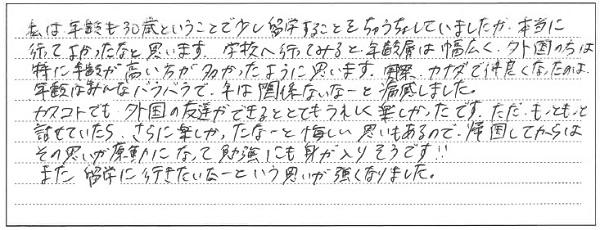 私は年齢も30歳ということで少し留学することをちゅうちょしていましたが、本当に
行ってよかったなと思います。学校へ行ってみると、年齢層は幅広く、外国の方は
特に年齢が高い方が多かったように思います。実際、カナダで仲良くなったのは
年齢はみんなバラバラで、年は関係ないなーと痛感しました。
カタコトでも、外国の友達ができるととてもうれしく楽しかったです。ただ、もっともっと
話せていたら、さらに楽しかったなーと悔しい思いもあるので、帰国してからは
その思いが原動になって勉強にも身が入りそうです!!
また、留学に行きたいなーという思いが強くなりました。